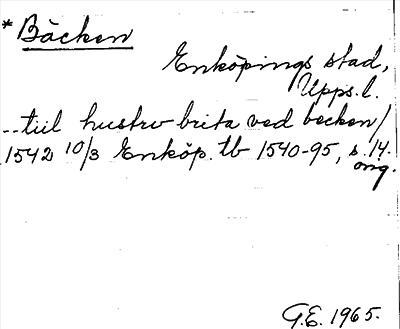 *Bäcken
Enköpings stad,
Upps.l.
--till hustrv brita ved becken/
1542 10/3 Enköp. tb 1540-95, s.14.
orig.
G.E. 1965.